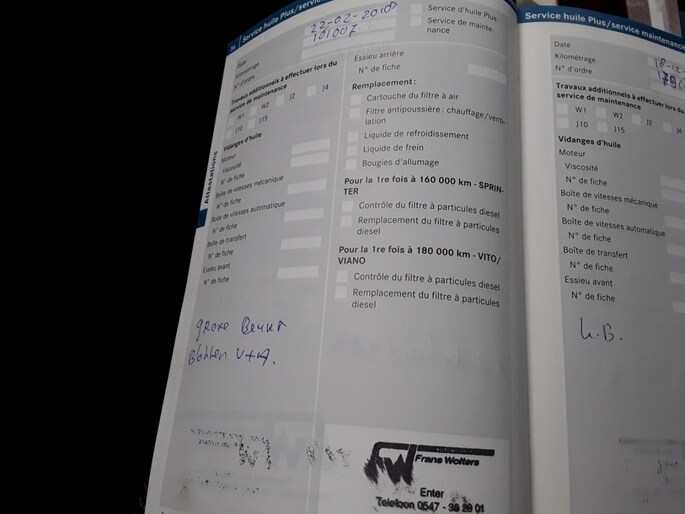 94 Service huile Plus/servic
Date
Kilométrage
N° d'ordre
22-02-2018
101007
Travaux additionnels à effectuer lors du
service de maintenance
W1 W2 J2 J4
J10 J15
Vidanges d'huile
Moteur
Viscosité
N° de fiche
Boîte de vitesses mécanique
N° de fiche
Boîte de vitesses automatique
N° de fiche
Boîte de transfert
N° de fiche
Essieu avant
N° de fiche
Attestations
Service d'huile Plus
Service de mainte-
nance
Essieu arrière
N° de fiche
Remplacement :
Cartouche du filtre à air
Filtre antipoussière : chauffage/venti-
lation
Liquide de refroidissement
Liquide de frein
Bougies d'allumage
Pour la 1re fois à 160 000 km - SPRIN-
TER
Contrôle du filtre à particules diesel
Remplacement du filtre à particules
diesel
Pour la 1re fois à 180 000 km - VITO/
VIANO
Contrôle du filtre à particules diesel
Remplacement du filtre à particules
diesel
grote Beurt
V+A.
FW Frans Wolters
Enter
Telefoon 0547 - 38 28 01
Service huile Plus/service maintenance
Date
Kilométrage
N° d'ordre
18-12-
Travaux additionnels à effectuer lors du
service de maintenance
W1 W2 J2 J4
J10 J15
Vidanges d'huile
Moteur
Viscosité
N° de fiche
Boîte de vitesses mécanique
N° de fiche
Boîte de vitesses automatique
N° de fiche
Boîte de transfert
N° de fiche
Essieu avant
N° de fiche
K.B.